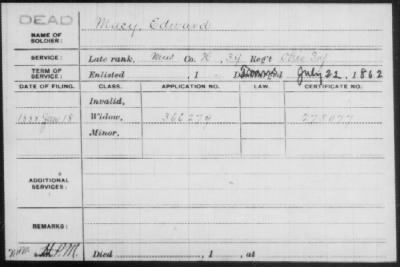 DEAD
NAME OF SOLDIER: Macy, Edward
SERVICE: Late rank, Mus Co. K, 34 Reg't Ohio Inf
TERM OF SERVICE: Enlisted , 1 D July 22, 1862
DATE OF FILING. CLASS. APPLICATION NO. LAW. CERTIFICATE NO.
Invalid,
Jan 18 Widow, 362279 275077
Minor,
ADDITIONAL SERVICES:
REMARKS:
H.P.M. Died , 1 , at